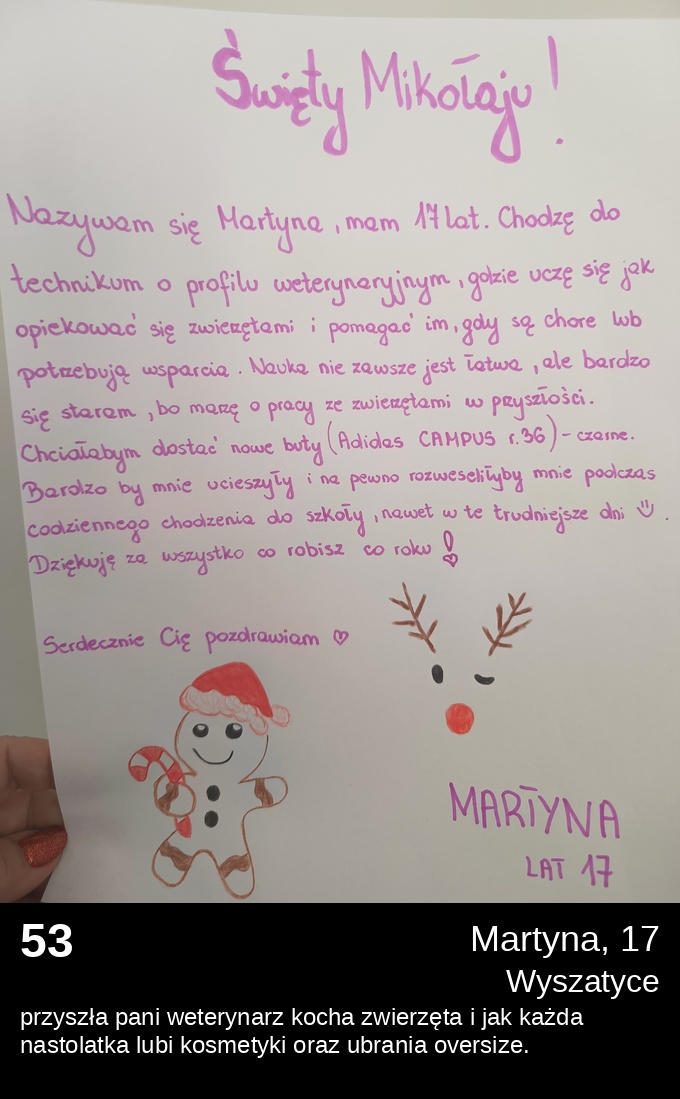 Święty Mikołaju!
Nazywam się Martyna, mam 17 lat. Chodzę do
technikum o profilu weterynaryjnym, gdzie uczę się jak
opiekować się zwierzętami i pomagać im, gdy są chore lub
potrzebują wsparcia. Nauka nie zawsze jest łatwa, ale bardzo
się staram, bo marzę o pracy ze zwierzętami w przyszłości.
Chciałabym dostać nowe buty (Adidas CAMPUS r.36) - czarne.
Bardzo by mnie ucieszyły i na pewno rozweseliłyby mnie podczas
codziennego chodzenia do szkoły, nawet w te trudniejsze dni ☺.
Dziękuję za wszystko co robisz co roku!
Serdecznie Cię pozdrawiam ♡
MARTYNA
LAT 17
53
Martyna, 17
Wyszatyce
przyszła pani weterynarz kocha zwierzęta i jak każda
nastolatka lubi kosmetyki oraz ubrania oversize.